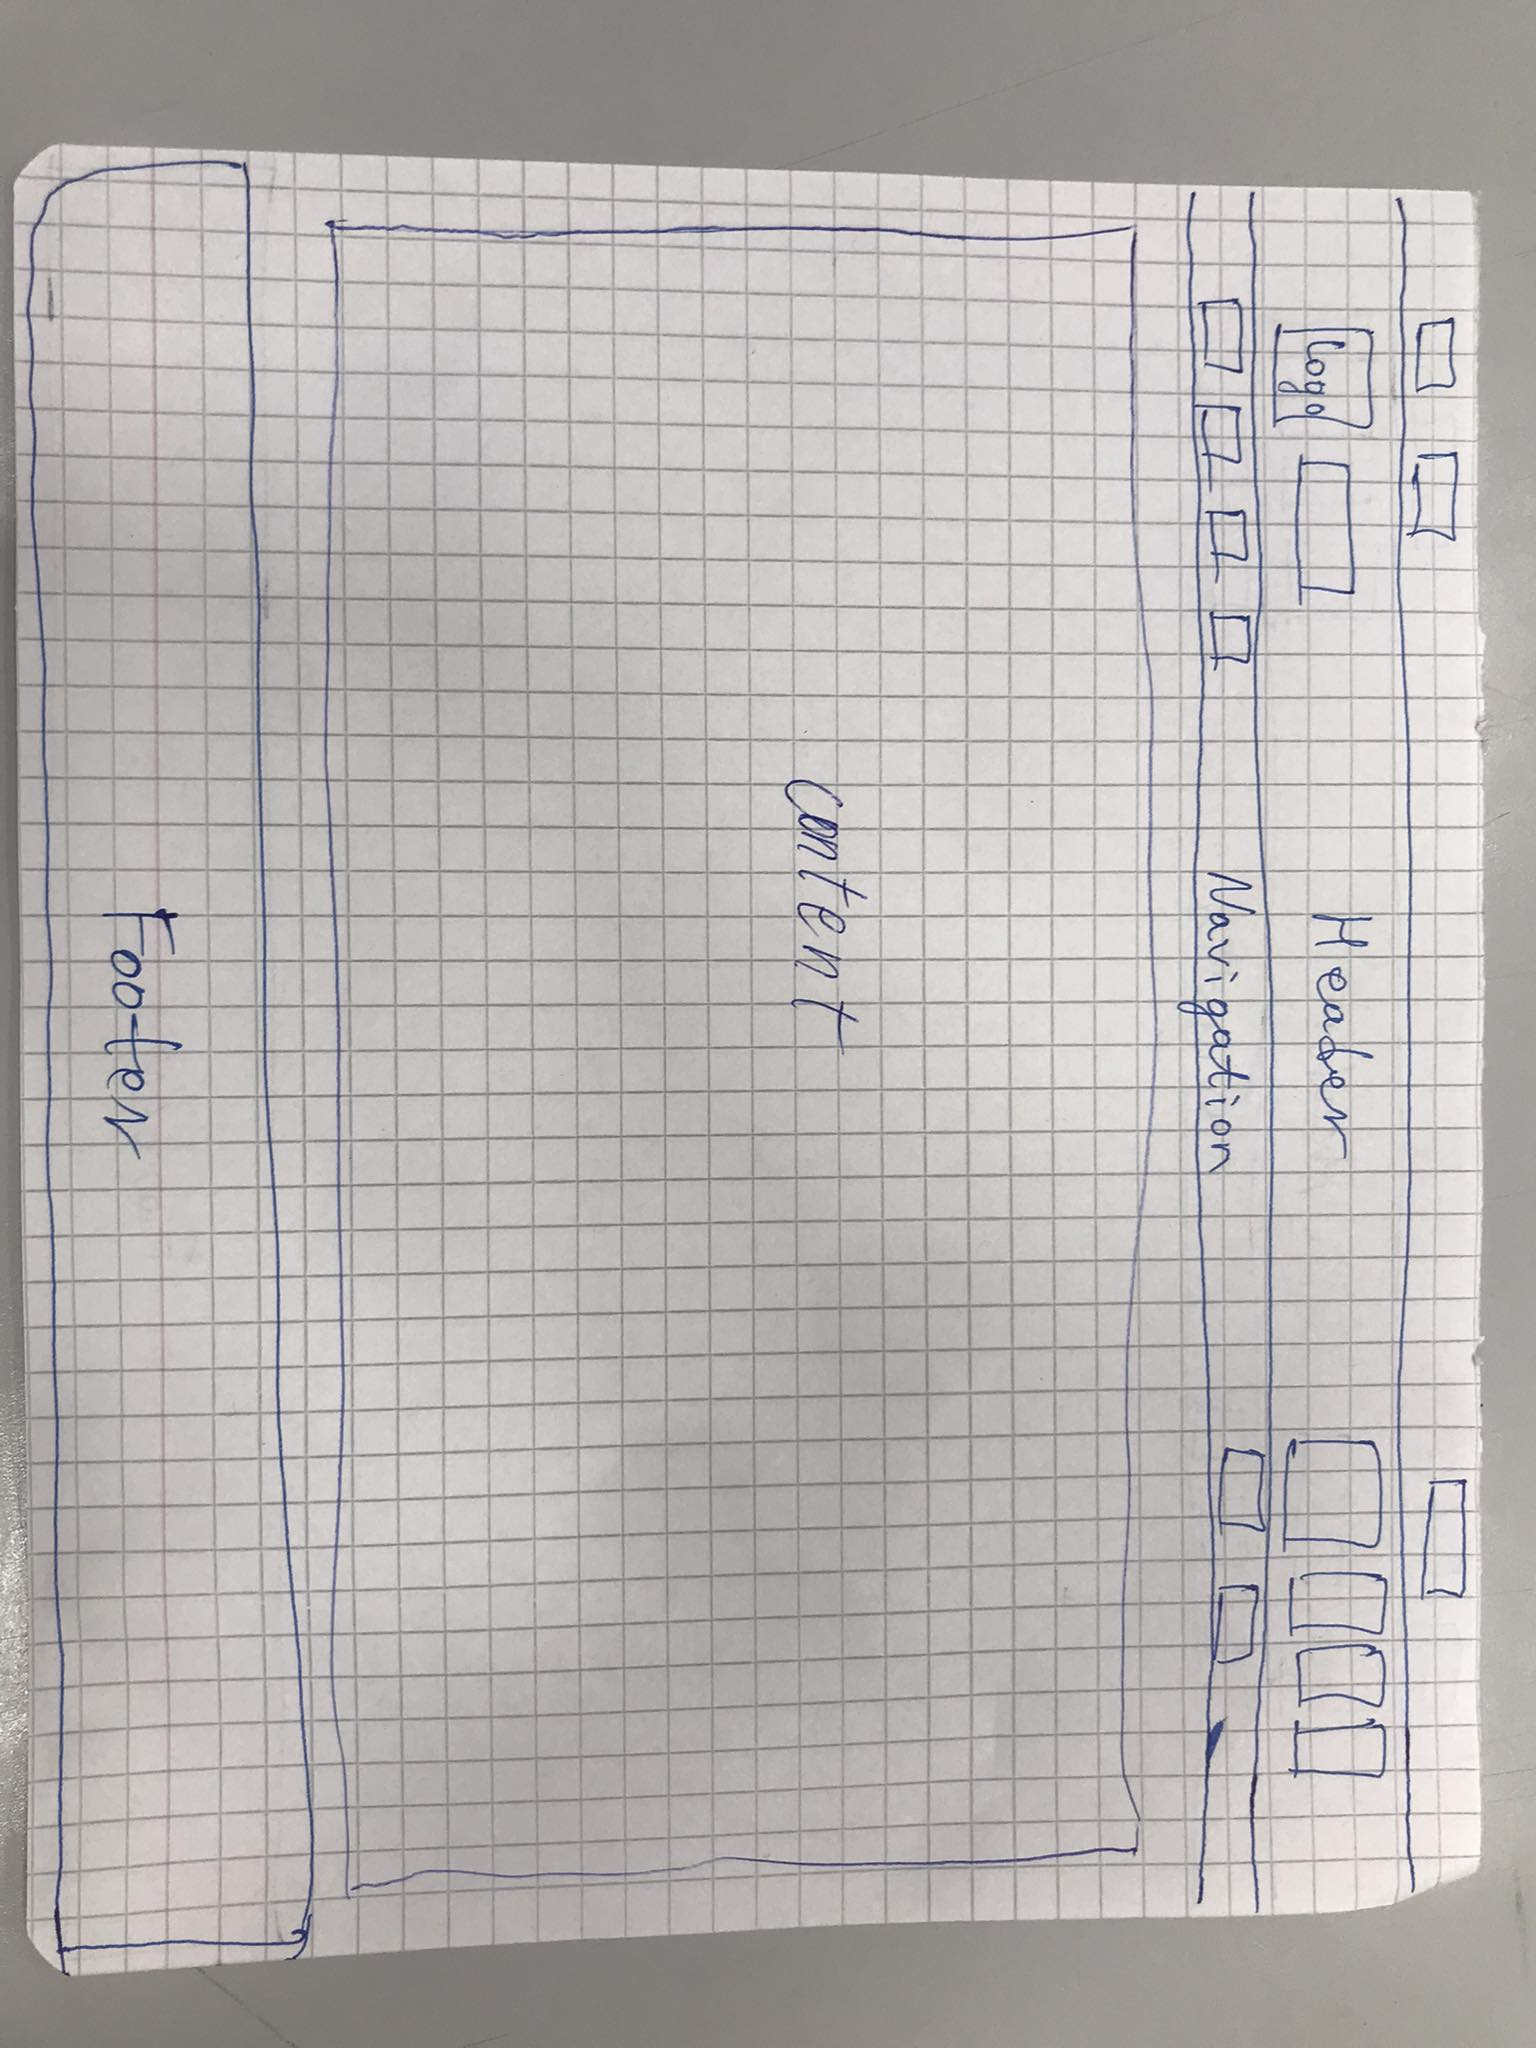 Logo
Header
Navigation
Content
Footer